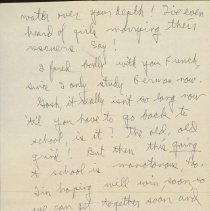 water over your depth! I've even
heard of girls marrying their
rescuers. Say!
I fared badly with you French,
since I only study German now.
Gosh it really isn't so long now
'til you have to go back to
school, is it? The old, old
grind! But then this going
to school is monotonous, too.
I'm hoping we'll win soon so
we can get together soon and